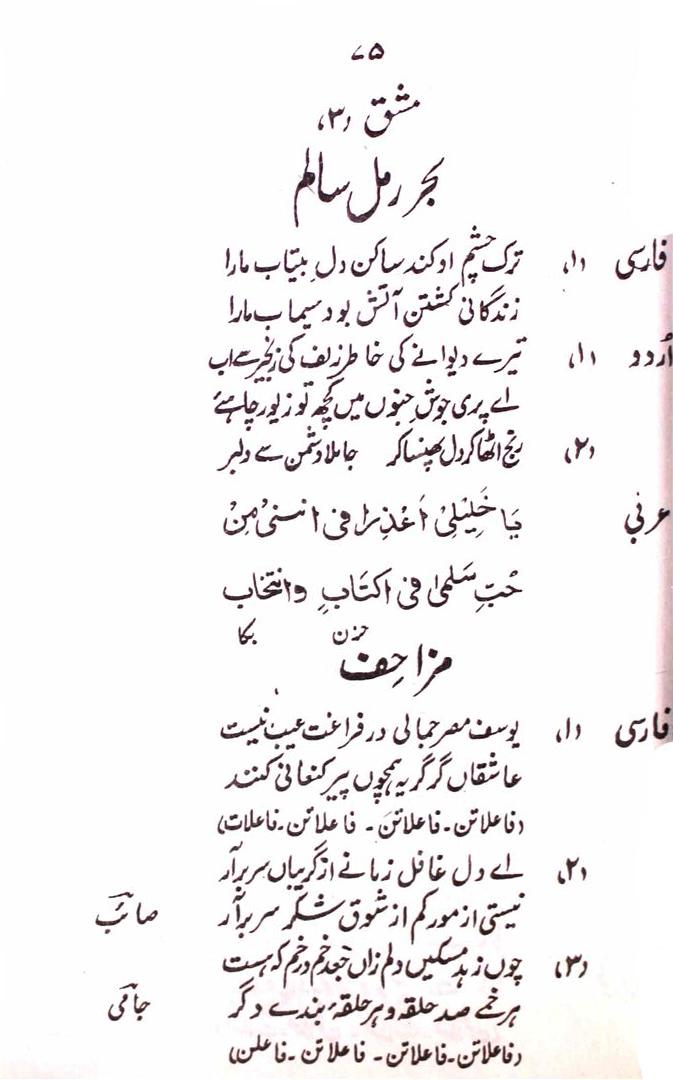 ۷۵
مشق (۳)
بحر رمل سالم
فارسی (۱) ترک چشم او کند ساکن دل بیتاب مارا
زندگانی کشتن آتش بود سیماب مارا
اُردو (۱) تیرے دیوانے کی خاطر زلف کی زنجیر سے اب
اے پری جوشِ جنوں میں کچھ تو زیور چاہئے
(۲) رنج اٹھا کر دل پھنسا کر جا ملا دشمن سے دلبر
عربی یَا خَلِیْلِیْ اَعْذِرا فی انسنیُ مِنْ
حُبِّ سَلمیٰ فی اکتَابٍ وانتخاب
حزن بکا
مزاحِف
فارسی (۱) یوسف مصر جمالی در فراغت عیب نیست
عاشقاں گر گریہ ہمچوں پیر کنعانی کنند
(فاعلاتن۔فاعلاتن۔ فاعلاتن۔فاعلات)
(۲) اے دل غافل زمانے از گریباں سر برآر
نیستی از مور کم از شوق شکر سر برآر صائبؔ
(۳) چوں زہد مسکیں دلم زاں جعد خم در خم کہ ہست
ہر خمے صد حلقہ و ہر حلقۂ بندے دگر جامیؔ
(فاعلاتن۔فاعلاتن۔ فاعلاتن۔فاعلن)